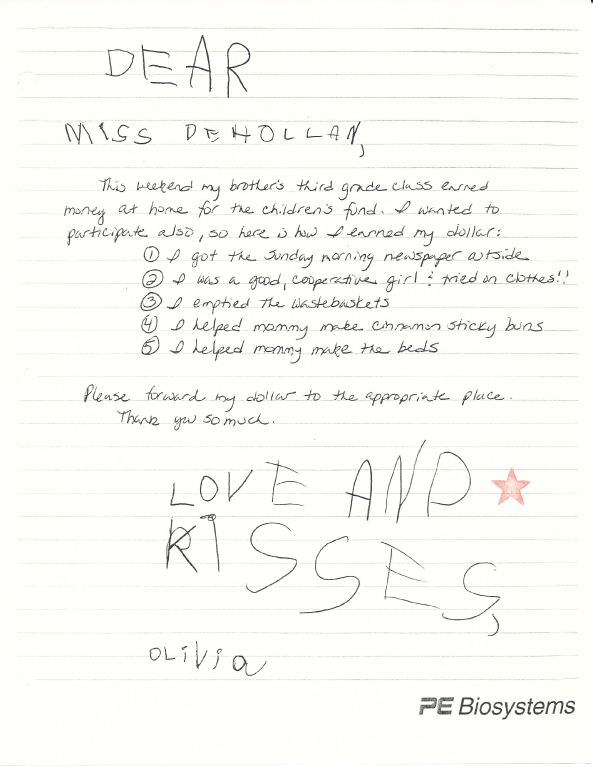 DEAR
MISS DEHOLLAN,
This weekend my brother's third grade class earned
money at home for the children's fund. I wanted to
participate also, so here is how I earned my dollar:
① I got the Sunday morning newspaper outside
② I was a good, cooperative girl & tried on clothes!!
③ I emptied the wastebaskets
④ I helped mommy make cinnamon sticky buns
⑤ I helped mommy make the beds
Please forward my dollar to the appropriate place.
Thank you so much.
LOVE AND
KISSES,
OLiVia
PE Biosystems